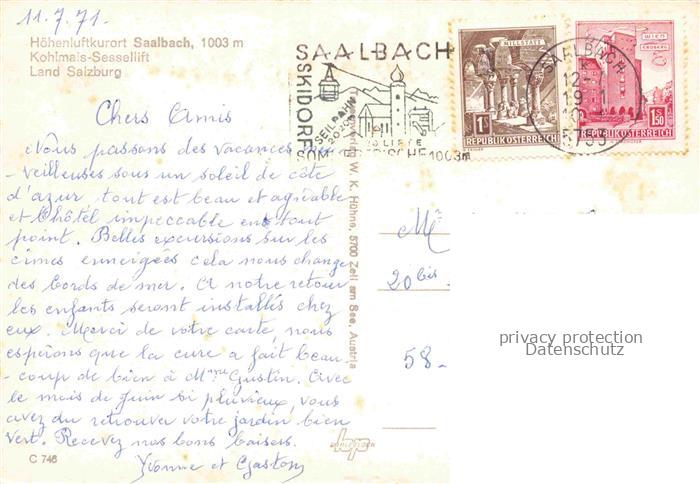 11.7.71.
Höhenluftkurort Saalbach, 1003 m
Kohlmais-Sessellift
Land Salzburg
SAALBACH
SKIDORF
SEILBAHN
2020m
20 LIFTE
SOMMERFRISCHE 1003m
MILLSTATT
1S
REPUBLIK ÖSTERREICH
WIEN
ERDBERG
1.50
REPUBLIK ÖSTERREICH
SAALBACH
12-
5753
Chers Amis
Nous passons des vacances mer
-veilleuses sous un soleil de côte
d'azur, tout est beau et agréable
et l'hôtel impeccable en tout
point. Belles excursions sur les
cimes enneigées cela nous change
des bords de mer. A notre retour
les enfants seront installés chez
eux. Merci de votre carte, nous
espérons que la cure a fait beau
-coup de bien à Mme Gustin. Avec
le mois de juin si pluvieux, vous
avez du retrouver votre jardin bien
vert. Recevez nos bons baisers.
Yvonne et Gaston
C 746
W. K. Höhne, 5700 Zell am See, Austria
M
20 bis
58-
privacy protection
Datenschutz